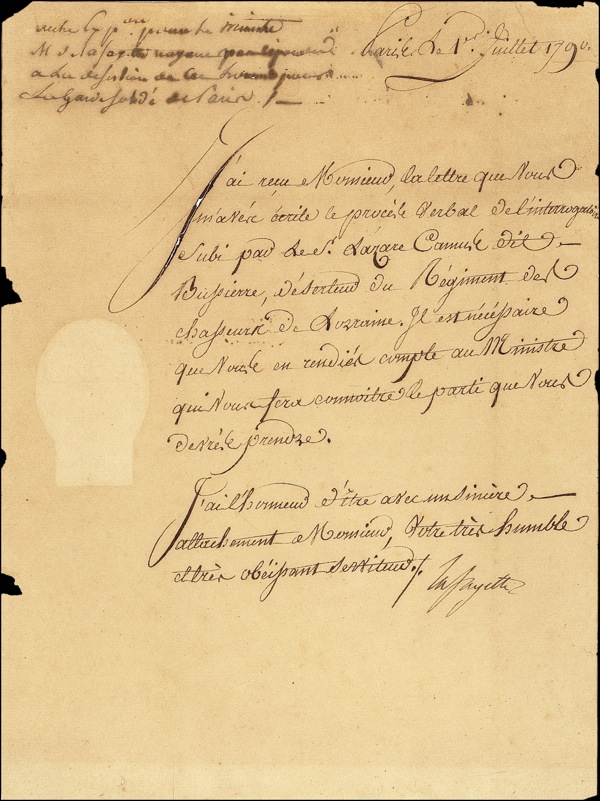 pour le ministre
M. de la fayette
a la désertion de
Paris Le 1er. Juillet 1790.
J'ai reçu Monsieur, la lettre que Vous
m'avés écrite le procès Verbal de l'interrogatoire
Subi par Le Sr. Lazare Camus dit
Bussierre, déserteur du Régiment des
chasseurs de Lorraine. Il est nécéssaire
que Vous en rendiés compte au Ministre
qui Vous fera connoitre le parti que Vous
devrés prendre.
J'ai l'honneur d'être avec un Sincère
attachement Monsieur, Votre très humble
et très obéissant Serviteur./.
Lafayette